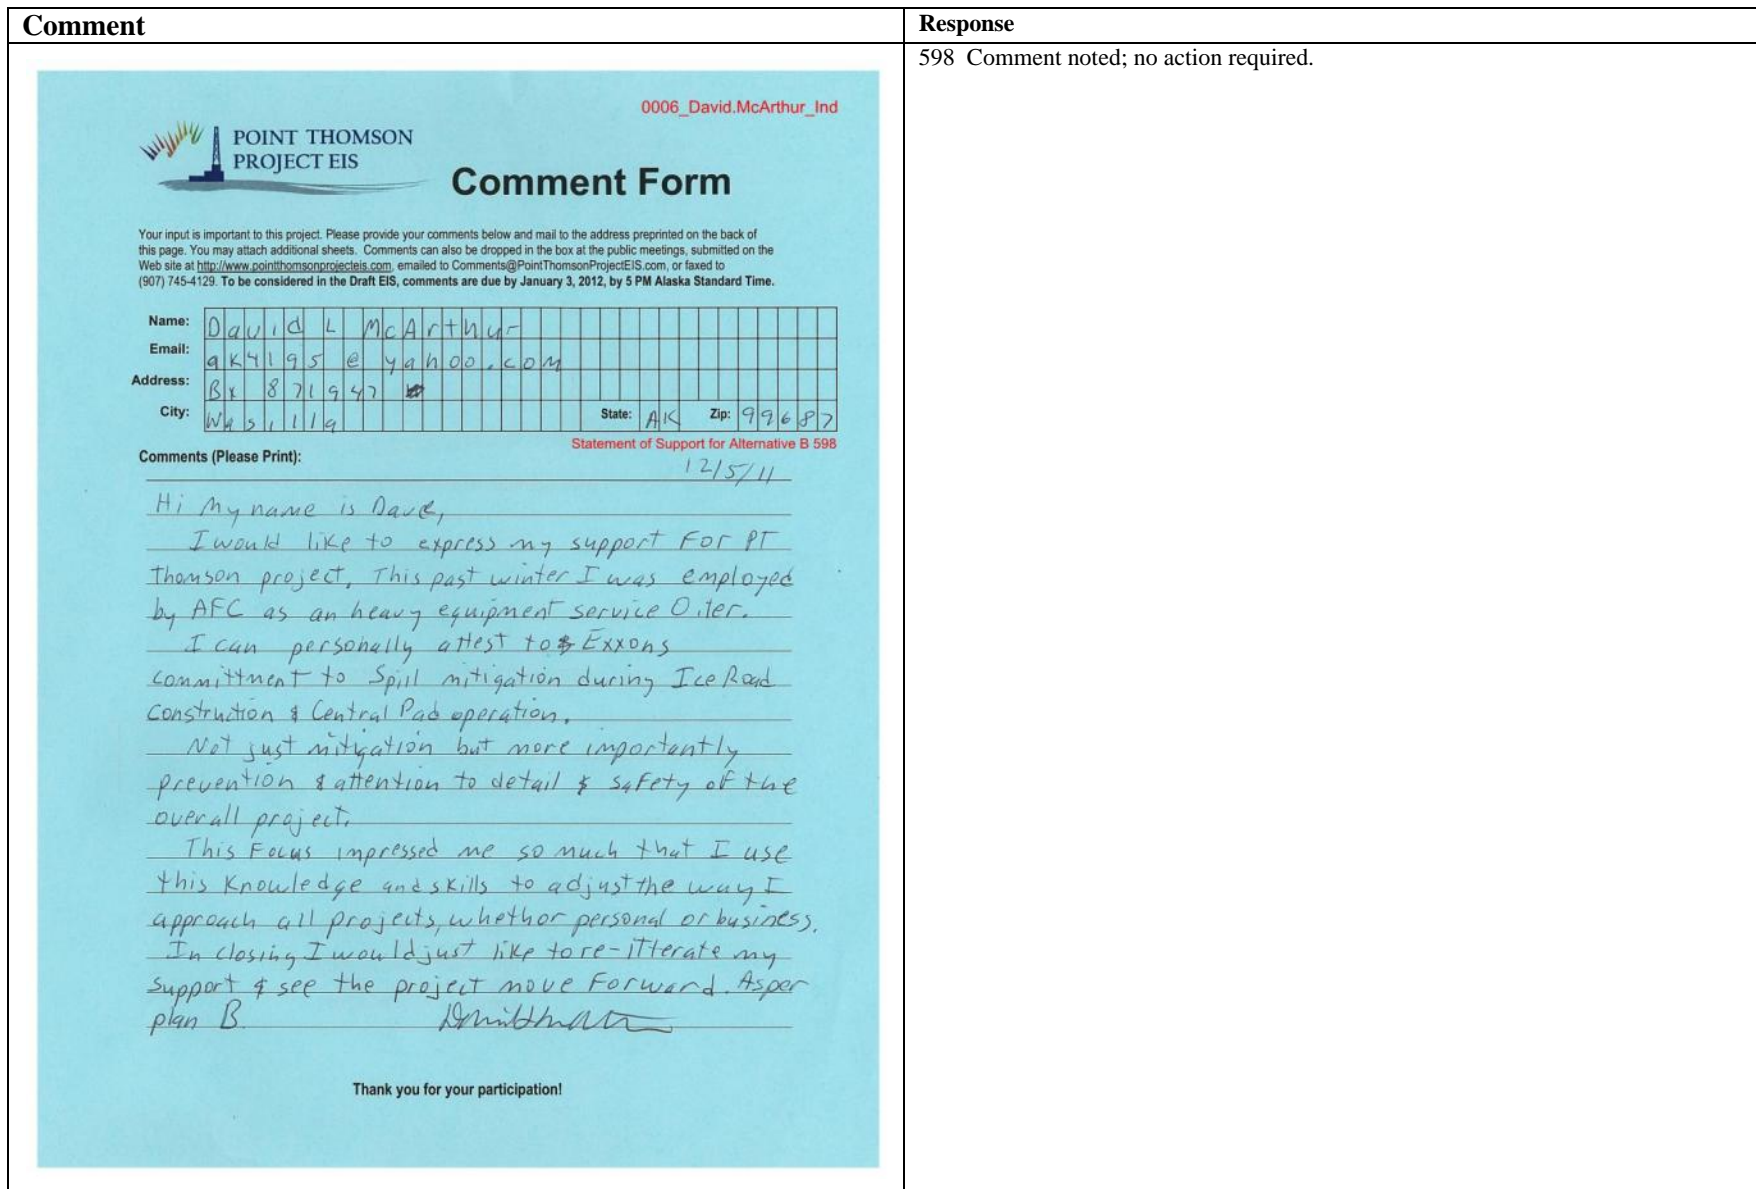 Comment
Response
598 Comment noted; no action required.
0006_David.McArthur_Ind
POINT THOMSON
PROJECT EIS
Comment Form
Your input is important to this project. Please provide your comments below and mail to the address preprinted on the back of
this page. You may attach additional sheets. Comments can also be dropped in the box at the public meetings, submitted on the
Web site at http://www.pointthomsonprojecteis.com, emailed to Comments@PointThomsonProjectEIS.com, or faxed to
(907) 745-4129. To be considered in the Draft EIS, comments are due by January 3, 2012, by 5 PM Alaska Standard Time.
Name: David L McArthur
Email: ak4195@yahoo.com
Address: Bx 871947
City: Wasilla State: AK Zip: 99687
Statement of Support for Alternative B 598
Comments (Please Print):
12/5/11
Hi My name is Dave,
I would like to express my support For PT
Thomson project, This past winter I was employed
by AFC as an heavy equipment service Oiler.
I can personally attest to Exxons
committment to Spill mitigation during Ice Road
Construction & Central Pad operation.
Not just mitigation but more importantly
prevention & attention to detail & saFety oF the
overall project.
This Focus impressed me so much that I use
this Knowledge and skills to adjust the way I
approach all projects, whethor personal or business.
In closing I would just like to re-itterate my
Support & see the project move Forward. As per
plan B.
Thank you for your participation!